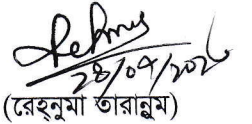 28/04/202
(রেহ্‌নুমা তারান্নুম)